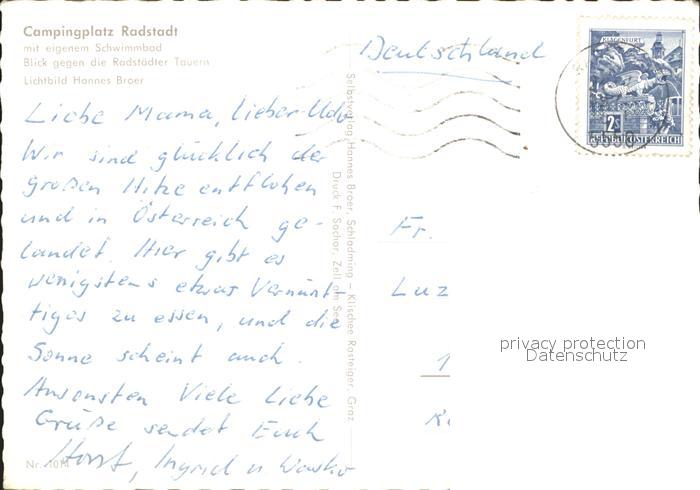 Campingplatz Radstadt
mit eigenem Schwimmbad
Blick gegen die Radstädter Tauern
Lichtbild Hannes Broer
Liebe Mama, lieber Udo
Wir sind glücklich der
großen Hitze entflohen
und in Österreich ge-
landet. Hier gibt es
wenigstens etwas Vernünf-
tiges zu essen, und die
Sonne scheint auch.
Ansonsten Viele Liebe
Grüße sendet Euch
Horst, Ingrid u
Nr. 1014
Selbstverlag Hannes Broer, Schladming – Klischee Rosteiger, Graz
Druck F. Sochor, Zell am See
Deutschland
KLAGENFURT
2S
REPUBLIK ÖSTERREICH
Fr.
Luz
1
K
privacy protection
Datenschutz